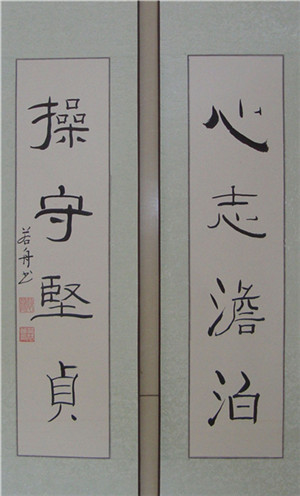 心志澹泊
操守堅貞
若舟书